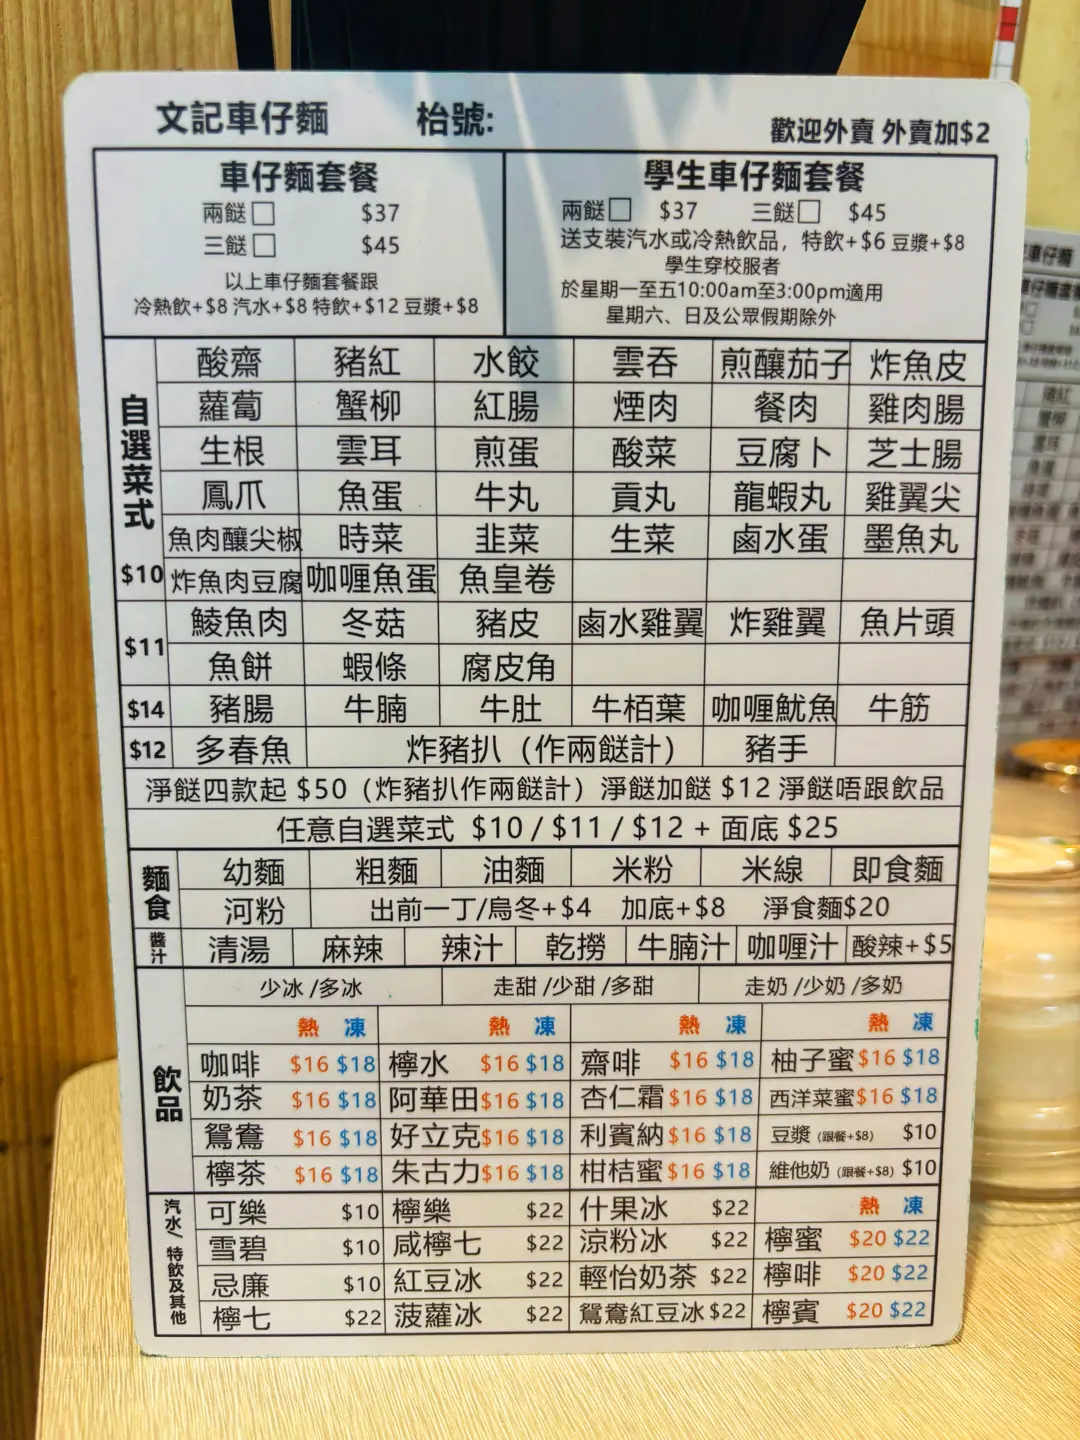 文記車仔麵 枱號:
歡迎外賣 外賣加$2
車仔麵套餐
兩餸□ $37
三餸□ $45
以上車仔麵套餐跟
冷熱飲+$8 汽水+$8 特飲+$12 豆漿+$8
學生車仔麵套餐
兩餸□ $37 三餸□ $45
送支裝汽水或冷熱飲品，特飲+$6 豆漿+$8
學生穿校服者
於星期一至五10:00am至3:00pm適用
星期六、日及公眾假期除外
自選菜式
$10
酸齋 豬紅 水餃 雲吞 煎釀茄子 炸魚皮
蘿蔔 蟹柳 紅腸 煙肉 餐肉 雞肉腸
生根 雲耳 煎蛋 酸菜 豆腐卜 芝士腸
鳳爪 魚蛋 牛丸 貢丸 龍蝦丸 雞翼尖
魚肉釀尖椒 時菜 韭菜 生菜 鹵水蛋 墨魚丸
炸魚肉豆腐 咖喱魚蛋 魚皇卷
$11
鯪魚肉 冬菇 豬皮 鹵水雞翼 炸雞翼 魚片頭
魚餅 蝦條 腐皮角
$14 豬腸 牛腩 牛肚 牛栢葉 咖喱魷魚 牛筋
$12 多春魚 炸豬扒（作兩餸計） 豬手
淨餸四款起 $50（炸豬扒作兩餸計）淨餸加餸 $12 淨餸唔跟飲品
任意自選菜式 $10 / $11 / $12 + 面底 $25
麵食
幼麵 粗麵 油麵 米粉 米線 即食麵
河粉 出前一丁/烏冬+$4 加底+$8 淨食麵$20
醬汁 清湯 麻辣 辣汁 乾撈 牛腩汁 咖喱汁 酸辣+$5
飲品
少冰 /多冰 走甜 /少甜 /多甜 走奶 /少奶 /多奶
熱 凍 熱 凍 熱 凍 熱 凍
咖啡 $16 $18 檸水 $16 $18 齋啡 $16 $18 柚子蜜 $16 $18
奶茶 $16 $18 阿華田 $16 $18 杏仁霜 $16 $18 西洋菜蜜 $16 $18
鴛鴦 $16 $18 好立克 $16 $18 利賓納 $16 $18 豆漿（跟餐+$8） $10
檸茶 $16 $18 朱古力 $16 $18 柑桔蜜 $16 $18 維他奶（跟餐+$8） $10
汽水/特飲及其他
可樂 $10 檸樂 $22 什果冰 $22 熱 凍
雪碧 $10 咸檸七 $22 涼粉冰 $22 檸蜜 $20 $22
忌廉 $10 紅豆冰 $22 輕怡奶茶 $22 檸啡 $20 $22
檸七 $22 菠蘿冰 $22 鴛鴦紅豆冰 $22 檸賓 $20 $22